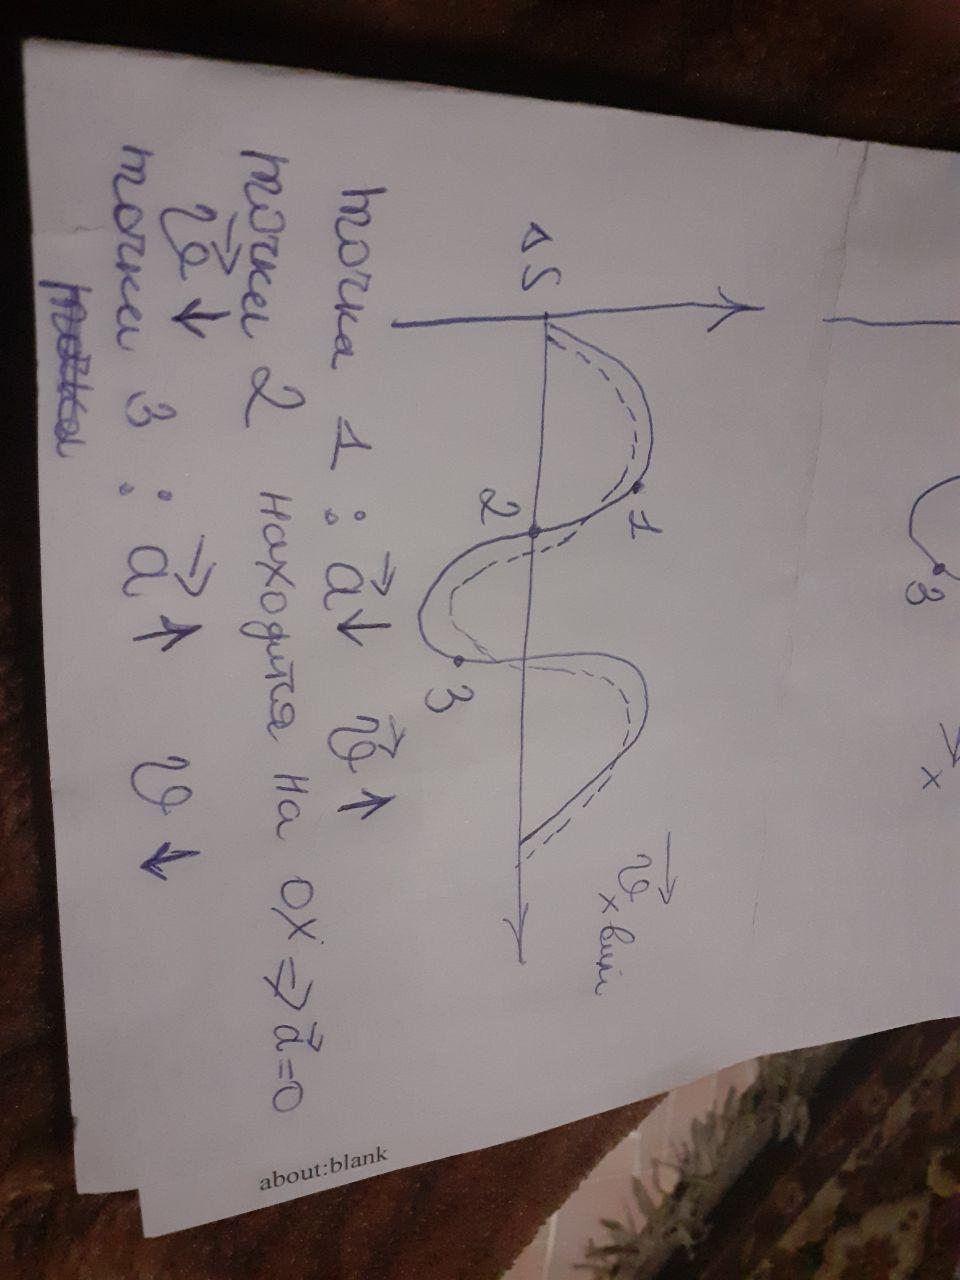 ΔS
1
2
3
3
x
v⃗
x вил
точка 1 : a⃗↓ v⃗↑
точки 2 находится на OX => a⃗=0
v⃗↓
точки 3 : a⃗↑ v↓
about:blank